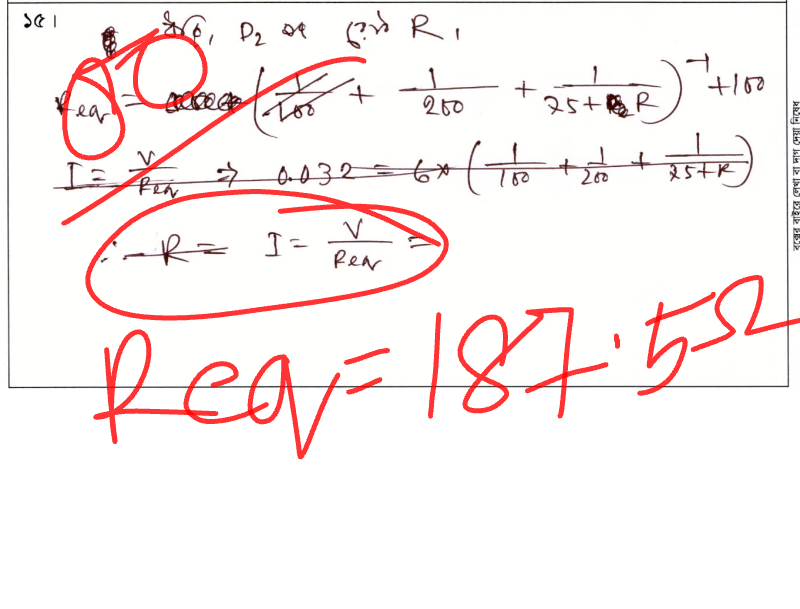 ১৫।
ধরি, D₂ এর রোধ R,
Req = (1/100 + 1/200 + 1/(25+R))⁻¹ + 100
I = V/Req ⇒ 0.032 = 6 × (1/100 + 1/200 + 1/(25+R))
∴ R = I = V/Req =
Req = 187.5Ω
বক্সের বাইরে লেখা বা দাগ দেয়া নিষেধ